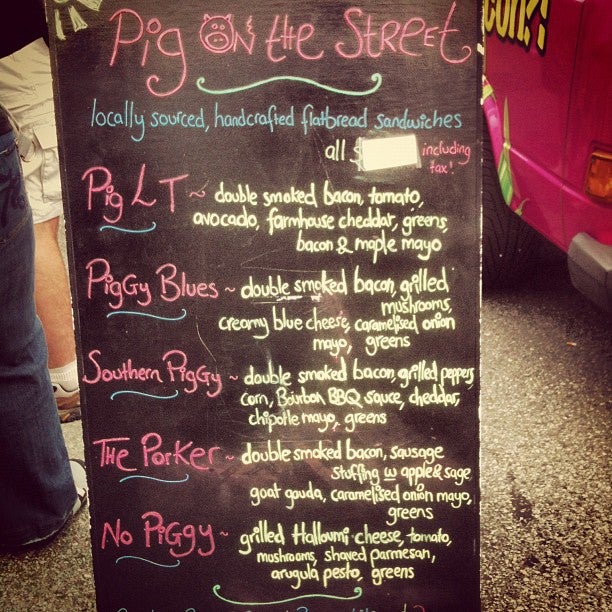 Pig on the Street
locally sourced, handcrafted flatbread sandwiches
all $
including
tax!
Pig LT ~ double smoked bacon, tomato,
avocado, farmhouse cheddar, greens,
bacon & maple mayo
Piggy Blues ~ double smoked bacon, grilled
mushrooms,
creamy blue cheese, caramelised onion
mayo, greens
Southern Piggy ~ double smoked bacon, grilled peppers
corn, Bourbon BBQ sauce, cheddar,
chipotle mayo, greens
The Porker ~ double smoked bacon, sausage
stuffing w apple & sage
goat gouda, caramelised onion mayo,
greens
No Piggy ~ grilled Halloumi cheese, tomato,
mushrooms, shaved parmesan,
arugula pesto, greens